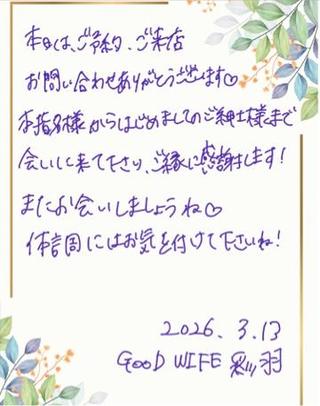 本日は、ご予約、ご来店
お問い合わせありがとうございます♡
本指名様からはじめましてのご紳士様まで
会いに来て下さり、ご縁に感謝します！
またお会いしましょうね♡
体調にはお気を付けて下さいね！
2026. 3.13
GOOD WIFE 彩羽